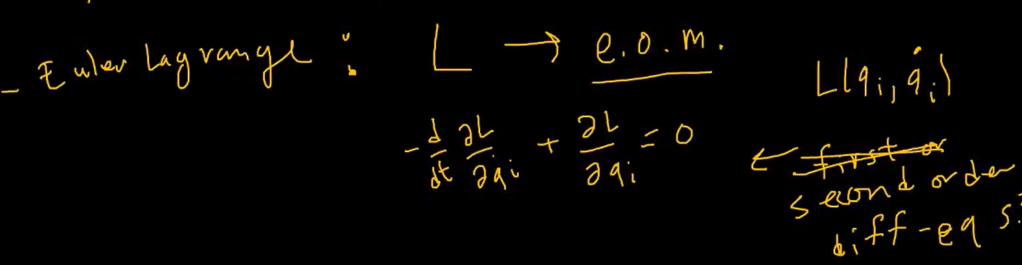 - Euler Lagrange : L → e.o.m.
L(qᵢ, q̇ᵢ)
- d/dt ∂L/∂q̇ᵢ + ∂L/∂qᵢ = 0
← first or
second order
diff-eqs.